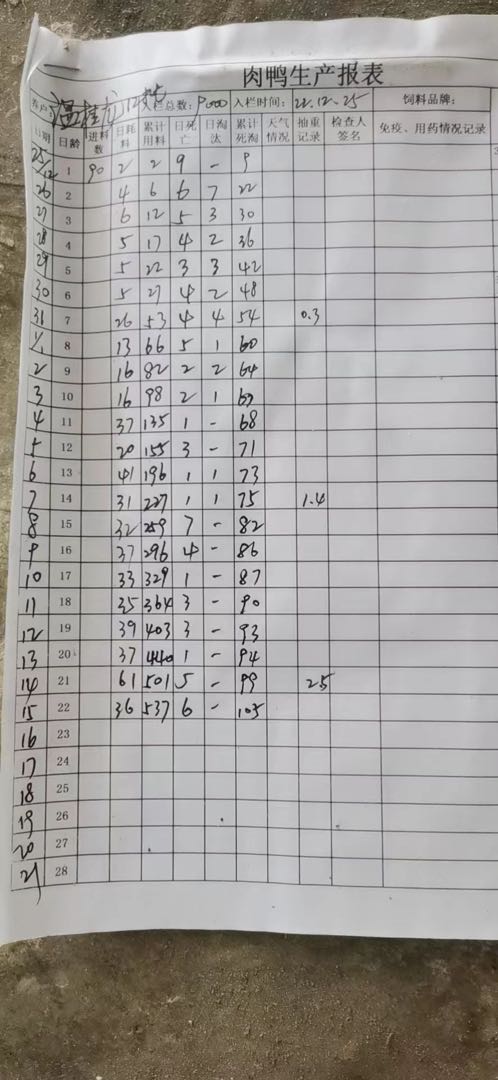 肉鸭生产报表
养户: 温桂 栏总数: 9000 入栏时间: 22.12.25 饲料品牌:
日期 日龄 进料数 日耗料 累计用料 日死亡 日淘汰 累计死淘 天气情况 抽重记录 检查人签名 免疫、用药情况记录
25/12 1 90 2 2 9 - 9
26 2 4 6 6 7 22
27 3 6 12 5 3 30
28 4 5 17 4 2 36
29 5 5 22 3 3 42
30 6 5 27 4 2 48
31 7 26 53 4 4 54 0.3
1/1 8 13 66 5 1 60
2 9 16 82 2 2 64
3 10 16 98 2 1 67
4 11 37 135 1 - 68
5 12 20 155 3 - 71
6 13 41 196 1 1 73
7 14 31 227 1 1 75 1.4
8 15 32 259 7 - 82
9 16 37 296 4 - 86
10 17 33 329 1 - 87
11 18 35 364 3 - 90
12 19 39 403 3 - 93
13 20 37 440 1 - 94
14 21 61 501 5 - 99 25
15 22 36 537 6 - 105
16 23
17 24
18 25
19 26
20 27
21 28